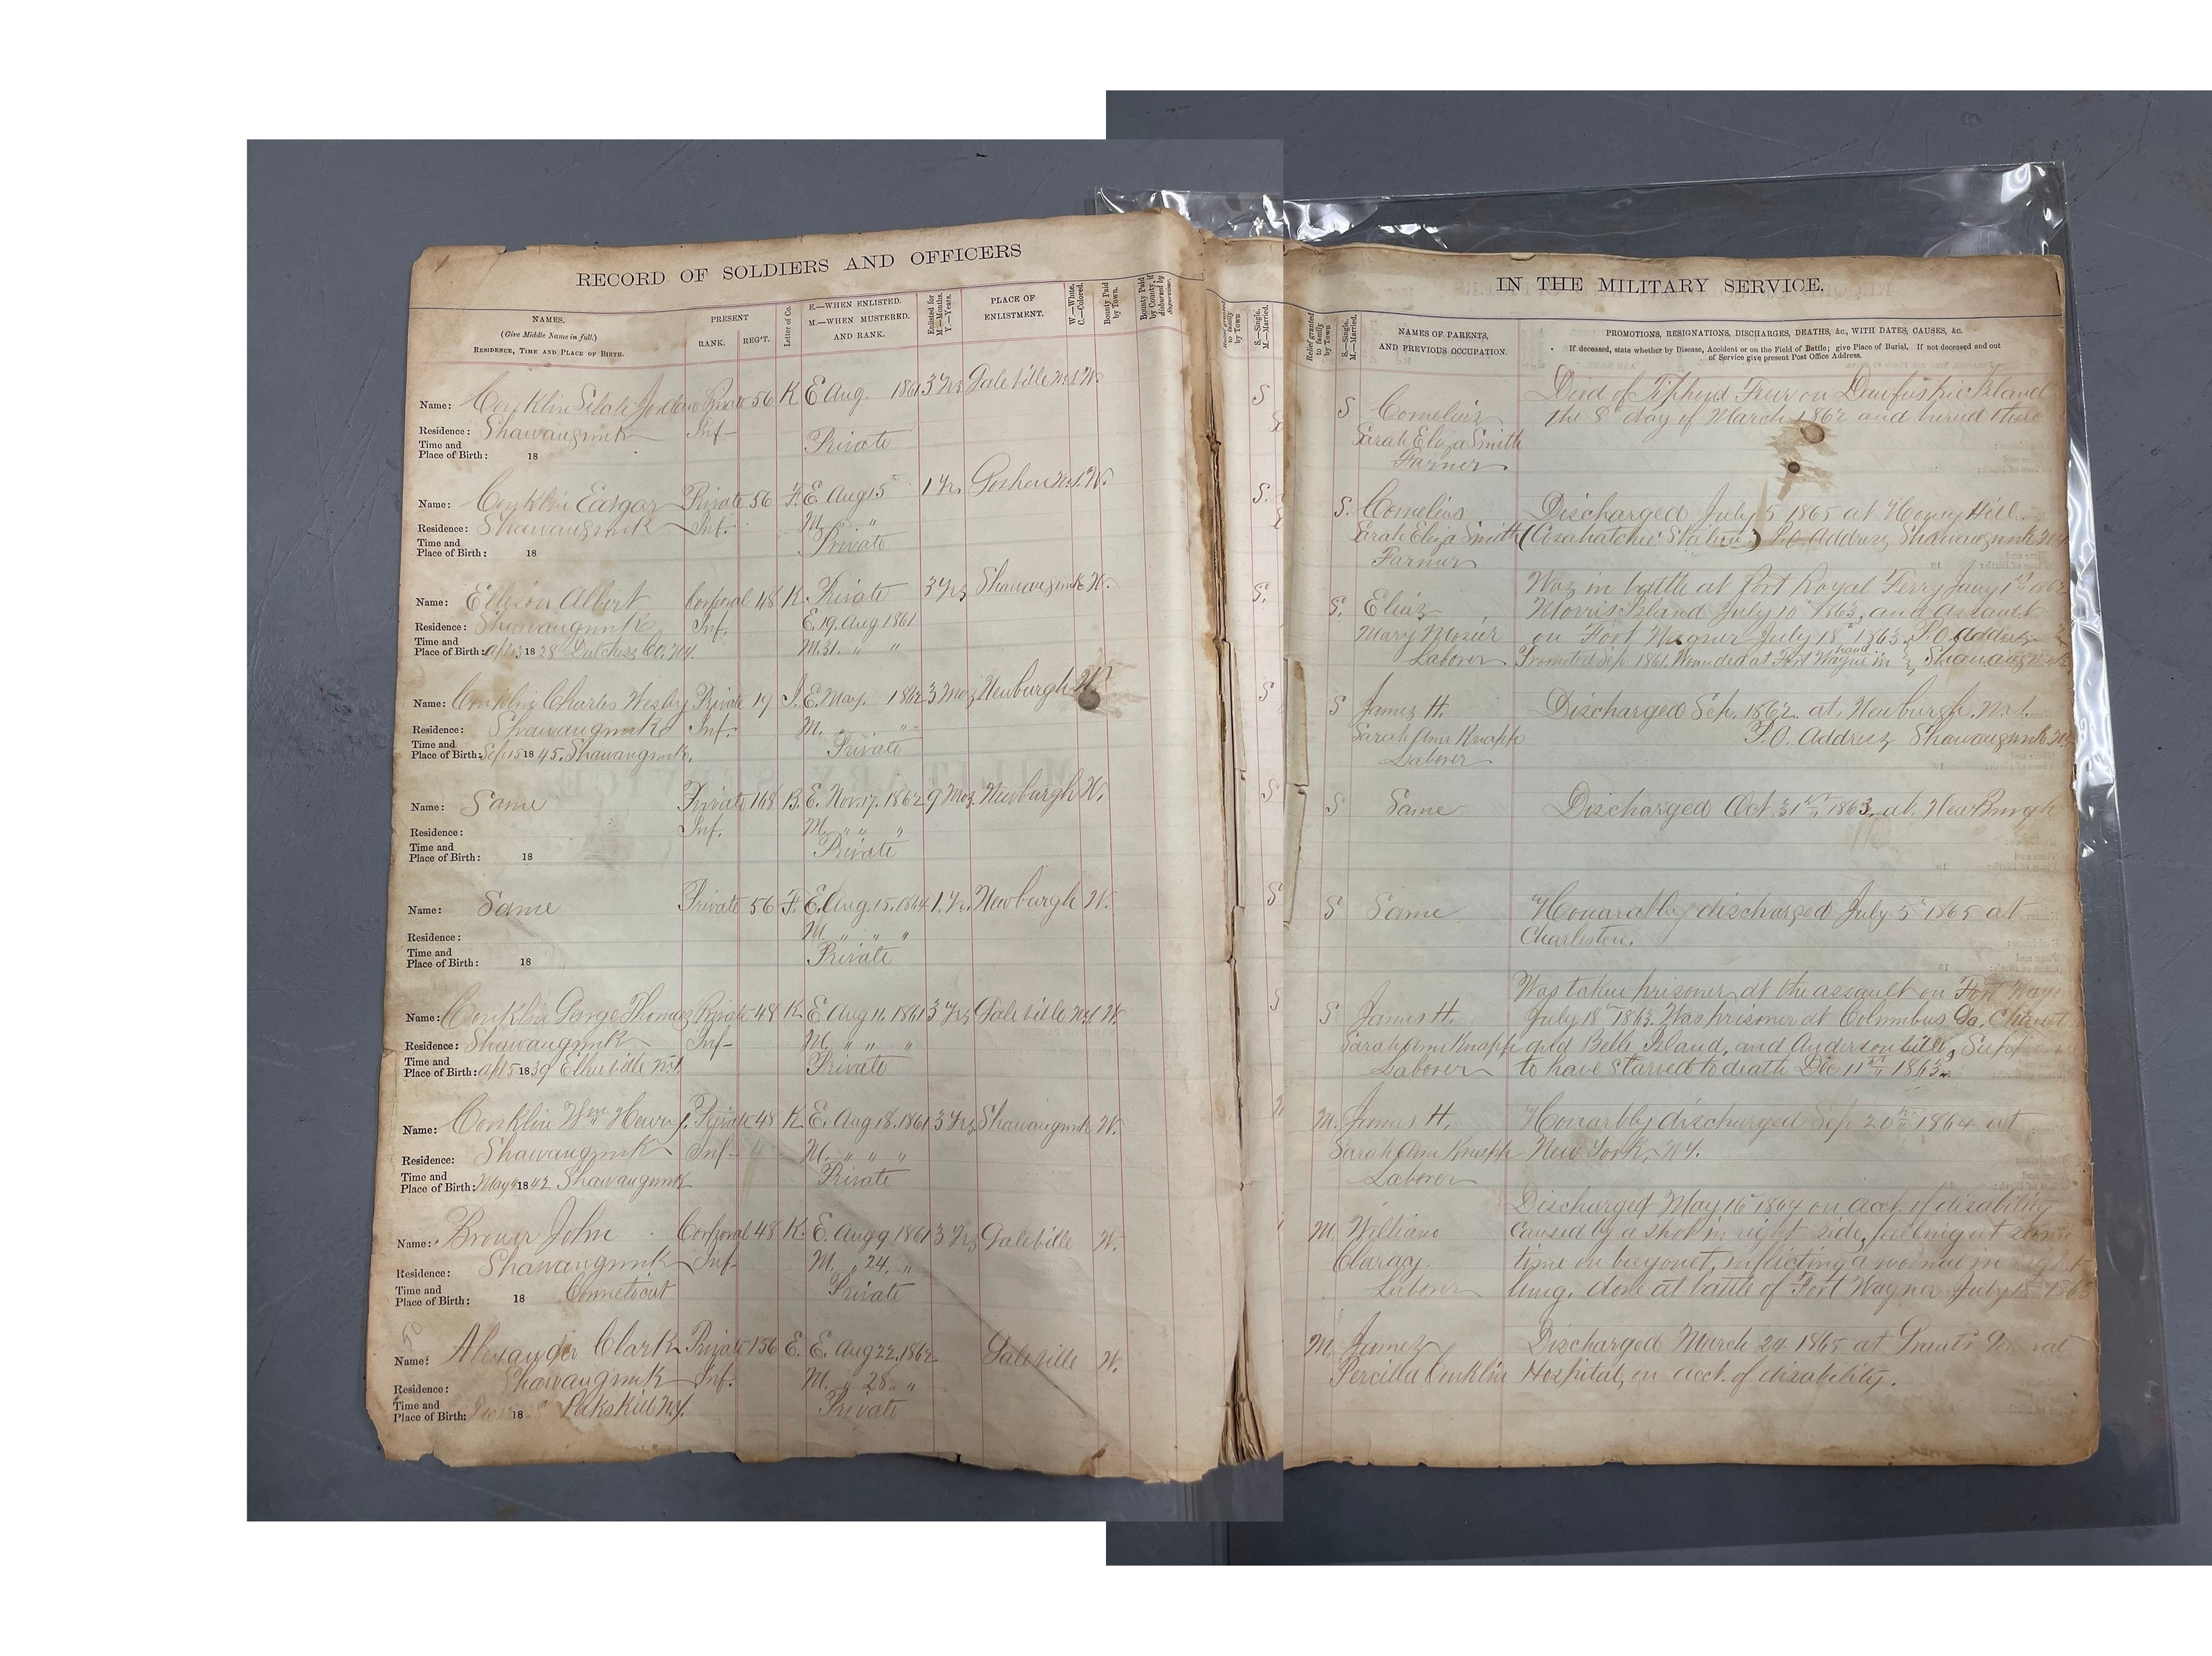 1
RECORD OF SOLDIERS AND OFFICERS
NAMES.
(Give Middle Name in full.)
RESIDENCE, TIME AND PLACE OF BIRTH.
PRESENT
RANK.
REG'T.
Letter of Co.
E.—WHEN ENLISTED.
M.—WHEN MUSTERED.
AND RANK.
Enlisted for
M.—Months.
Y.—Years.
PLACE OF
ENLISTMENT.
W.—White.
C.—Colored.
Bounty Paid
by Town.
Bounty Paid
by County, if
disbursed by
Supervisor.
Name: Conklin Private 56 K E Aug. 1861 3 Yrs Galeville N.Y. W.
Residence: Shawangunk Inf- Private
Time and
Place of Birth: 18
Name: Conklin Edgar Private 56 F. E Aug 15 1 Yr. Goshen N.Y. W.
Residence: Shawangunk Inf. M. " "
Time and Private
Place of Birth: 18
Name: Ellison Albert Corporal 48 K. Private 3 Yrs Shawangunk W.
Residence: Shawangunk Inf. E. 19. Aug 1861
Time and
Place of Birth: 18 28 Dutchess Co. N.Y. M. 31. " "
Name: Conklin Charles Wesly Private 19 I. E. May. 1862 3 Mos Newburgh W.
Residence: Shawangunk Inf. M. "
Time and Private
Place of Birth: Sep 15 18 45. Shawangunk.
Name: Same Private 168 B. E. Nov. 17. 1862 9 Mos. Newburgh W.
Residence: Inf. M. " " "
Time and Private
Place of Birth: 18
Name: Same Private 56 F. E. Aug. 15. 1864 1. Yr. Newburgh W.
Residence: M. " " "
Time and Private
Place of Birth: 18
Name: Conklin George Thomas Private 48 K E Aug 11. 1861 3 Yrs Galeville N.Y. W.
Residence: Shawangunk Inf- M. " " "
Time and Private
Place of Birth: 18 39 N.Y.
Name: Conklin Wm Henry. Private 48 K E. Aug 18. 1861 3 Yrs Shawangunk W.
Residence: Shawangunk Inf- M. " " "
Time and Private
Place of Birth: May 18 42 Shawangunk
Name: Brower John Corporal 48 K. E. Aug 9 1861 3 Yrs Galeville W.
Residence: Shawangunk Inf M. " 24. "
Time and Private
Place of Birth: 18 Conneticut
50
Name: Alexander Clark Private 156 E. E. Aug 22. 1862 Galeville W.
Residence: Shawangunk Inf. M. " 28. "
Time and Private
Place of Birth: 18 Peekskill N.Y.
IN THE MILITARY SERVICE.
Relief granted
to family
by Town
S.—Single.
M.—Married.
NAMES OF PARENTS,
AND PREVIOUS OCCUPATION.
PROMOTIONS, RESIGNATIONS, DISCHARGES, DEATHS, &c., WITH DATES, CAUSES, &c.
If deceased, state whether by Disease, Accident or on the Field of Battle; give Place of Burial. If not deceased and out
of Service give present Post Office Address.
Died of Tiphoid Fever on Daufuskie Island
S Cornelius the 8 day of March 1862 and buried there
Sarah Eliza Smith
Farmer
S. Cornelius Discharged July 5 1865 at Honey Hill.
Sarah Eliza Smith (Cosahatchie Station) P.O. Address Shawangunk N.Y.
Farmer
Was in battle at Port Royal Ferry Jany 1st 1862
S. Elias Morris Island July 10 1863, and assault
Mary Mosier on Fort Wagner July 18th 1863. P.O. Address
Laborer Promoted Sep. 1861. Wounded at Fort Wagner in hand Shawangunk
S James H. Discharged Sep. 1862. at, Newburgh. N.Y.
Sarah Ann Knapp P.O. Address Shawangunk N.Y.
Laborer
S Same Discharged Oct. 31st 1863. at. NewBurgh
S Same Honarably discharged July 5 1865 at
Charleston.
Was taken prisoner at the assault on Fort
S James H. July 18th 1863. Was prisoner at Columbus Ga.
Sarah Ann Knapp and Belle Island, and Andersonville,
Laborer to have starved to death Dec 11th 1863.
M. James H. Honarbly discharged Sep 20th 1864 at
Sarah Ann Knapp New York, N.Y.
Laborer
Discharged May 16 1864 on acct. of disability
M William caused by a shot in right side, falling at same
time on bayonet, inflicting a wound in right
Laborer lung. done at battle of Fort Wagner July 18 1863
M James Discharged March 24 1865 at Grants
Percilla Conklin Hospital, on acct. of disability.